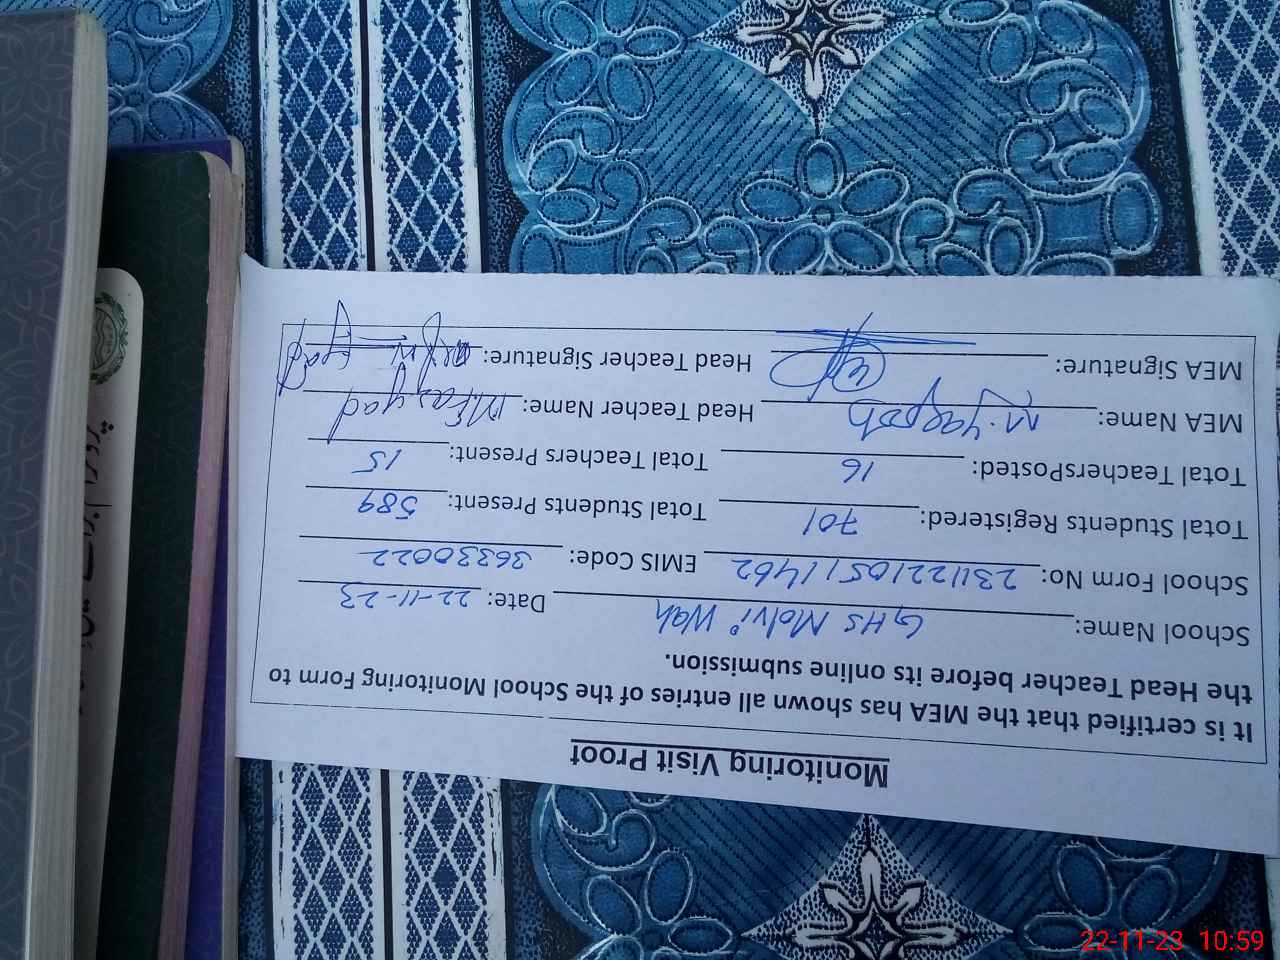 Monitoring Visit Proof
It is certified that the MEA has shown all entries of the School Monitoring Form to
the Head Teacher before its online submission.
School Name: GHS Molvi Wah Date: 22-11-23
School Form No: 23112210511462 EMIS Code: 36330022
Total Students Registered: 701 Total Students Present: 589
Total TeachersPosted: 16 Total Teachers Present: 15
MEA Name: M. Yaqoob Head Teacher Name:
MEA Signature: Head Teacher Signature:
22-11-23 10:59